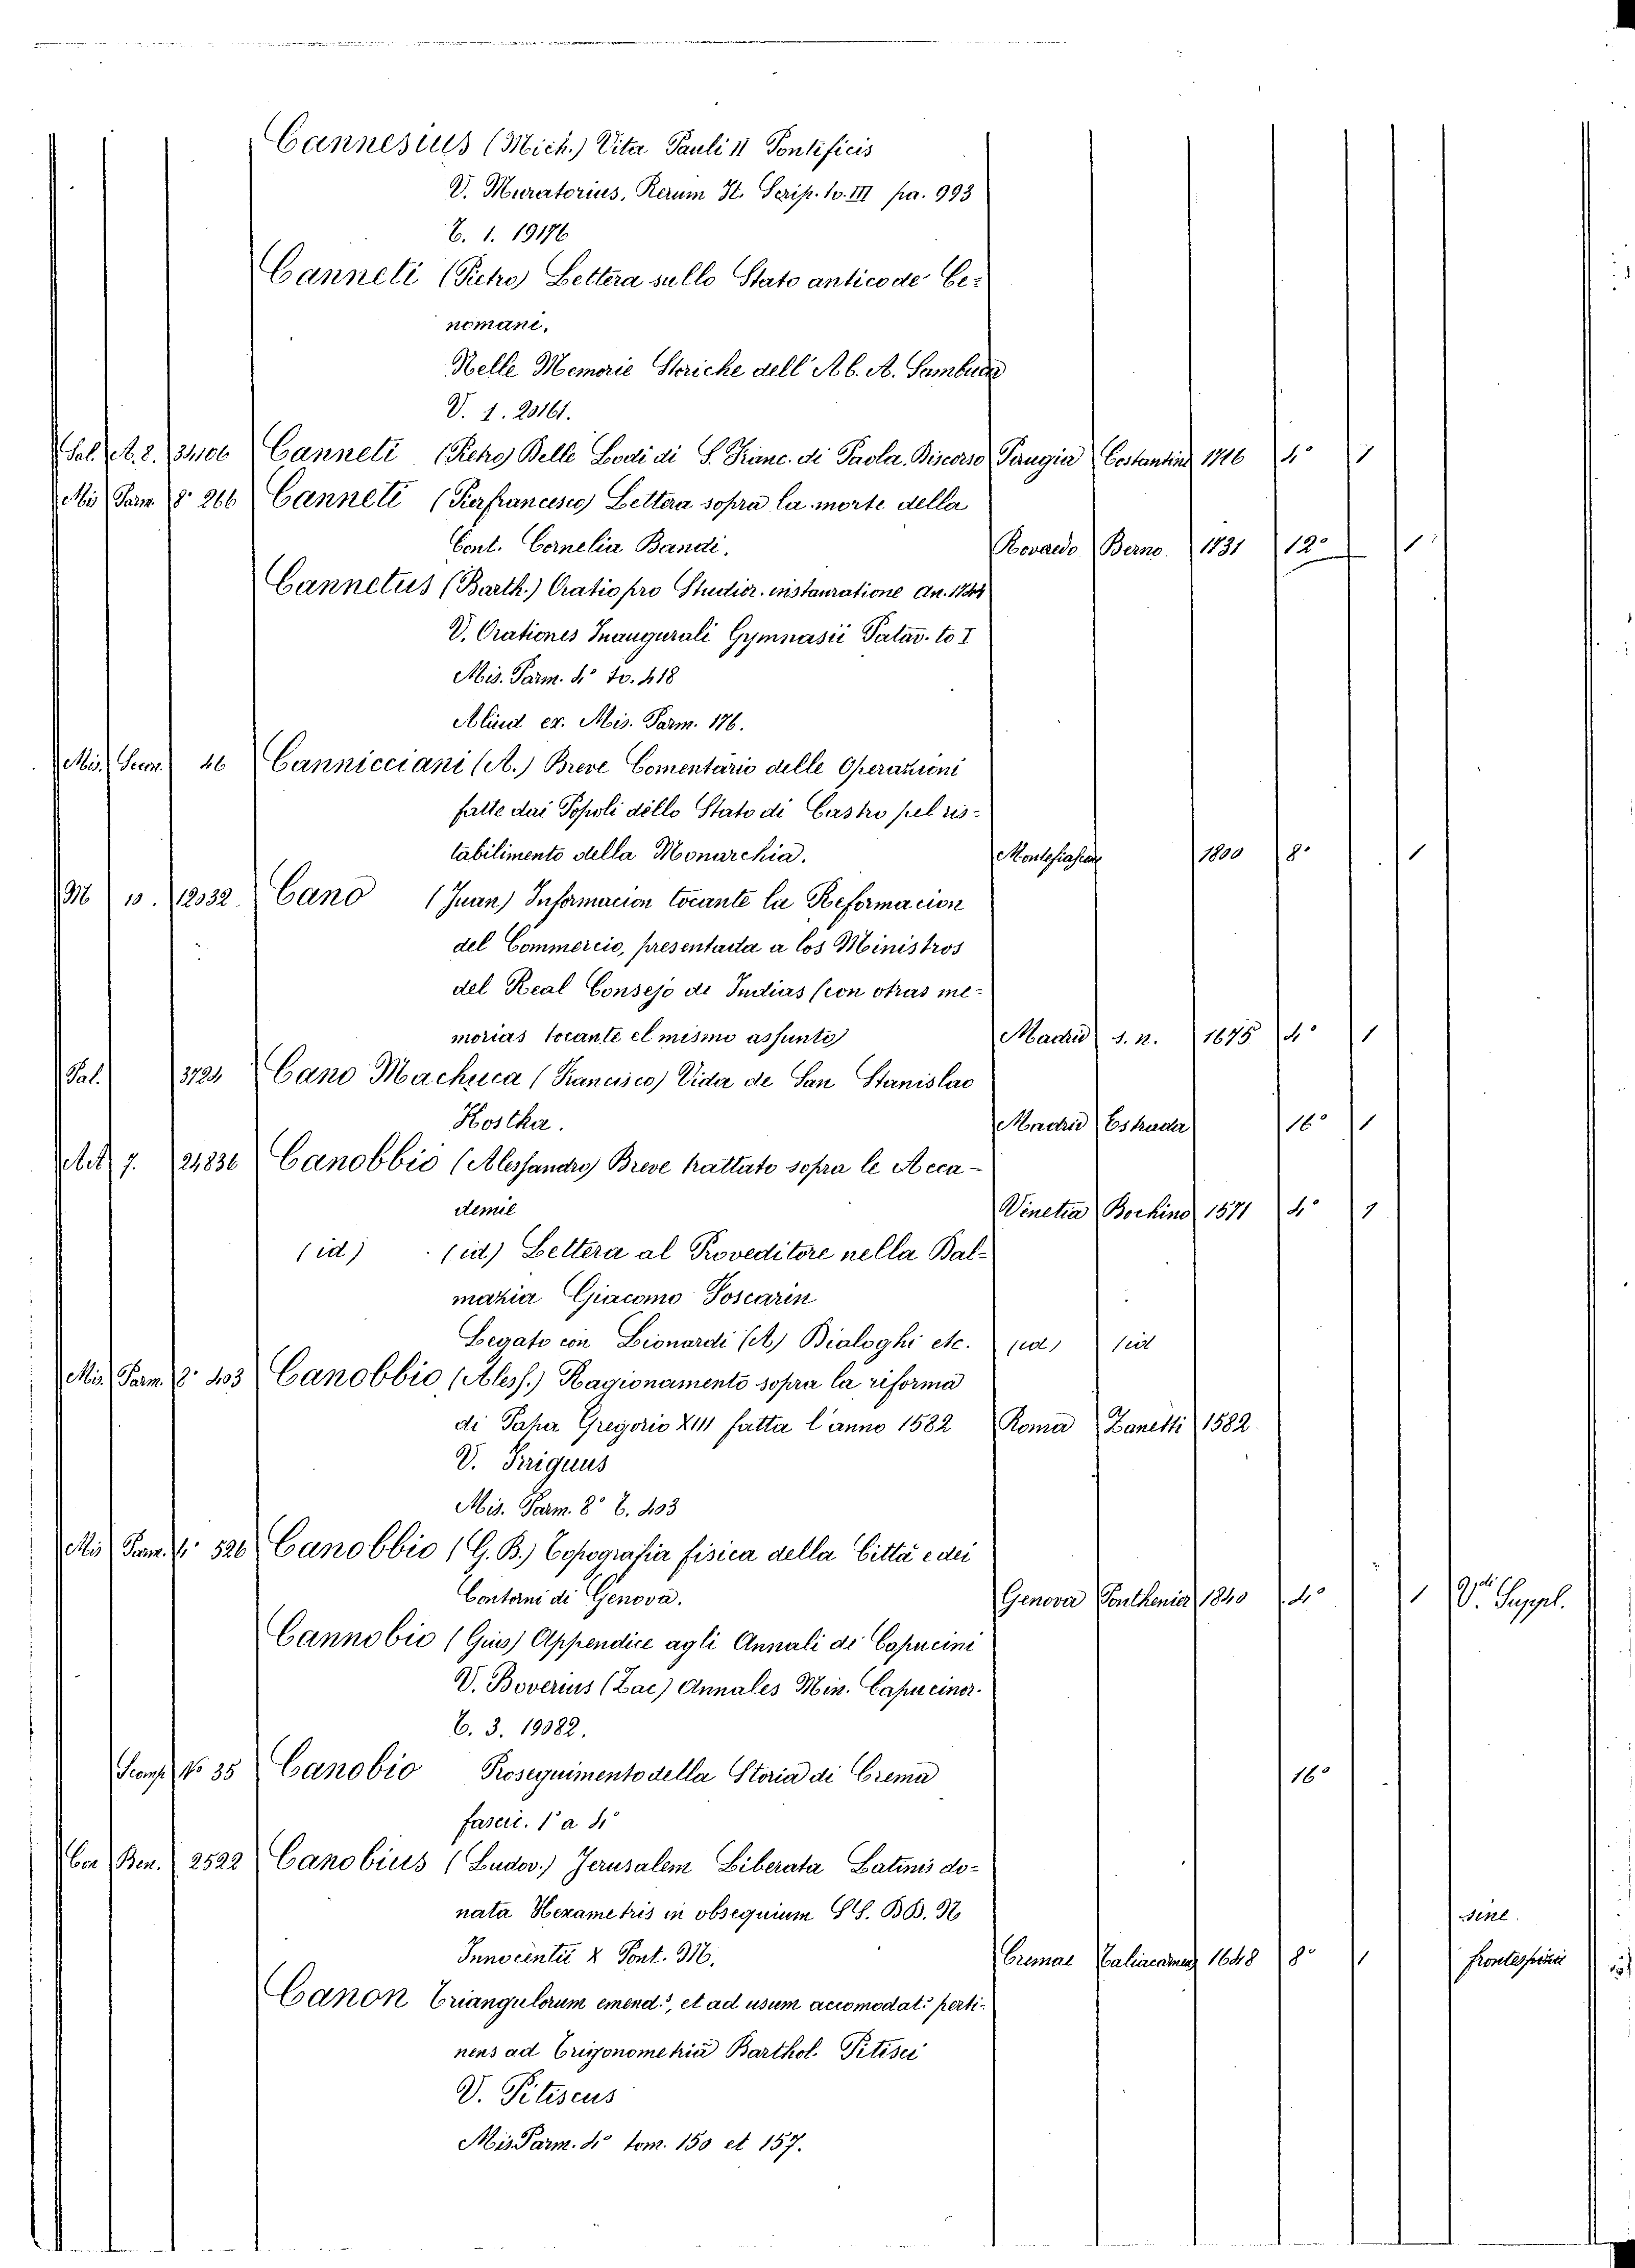 Cannesius (Mich.) Vita Pauli II Pontificis
V. Muratorius, Rerum It. Scrip. to. III pa. 993
E. 1. 19176
Canneti (Pietro) Lettera sullo Stato antico de' Ce-
nomani.
Nelle Memorie Storiche dell' Ab. A. Sambuca
V. 1. 20161.
Sal. A. 2. 34106 Canneti (Pietro) Delle Lodi di S. Franc. di Paola. Discorso Perugia Costantini 1716 4° 1
Mis Parm 8° 266 Canneti (Pierfrancesco) Lettera sopra la morte della
Cont. Cornelia Bandi. Roveredo Berno. 1731 12° 1
Cannetus (Barth.) Oratio pro Studior. instauratione An. 1744
V. Orationes Inaugurali Gymnasii Patav. to I
Mis. Parm. 4° to. 418
Aliud ex. Mis. Parm. 176.
Mis. 46 Cannicciani (A.) Breve Comentario delle Operazioni
fatte dai Popoli dello Stato di Castro pel ris-
tabilimento della Monarchia. Montefiascone 1800 8° 1
M 10. 12032 Cano (Juan) Informacion tocante la Reformacion
del Commercio, presentada a los Ministros
del Real Consejo de Indias (con otras me-
morias tocante el mismo assunto) Madrid s. n. 1675 4° 1
Pal. 3724 Cano Machuca (Francisco) Vida de San Stanislao
Kostka. Madrid Estrada 16° 1
7. 24836 Canobbio (Alessandro) Breve trattato sopra le Acca-
demie Venetia Bochino 1571 4° 1
(id) (id) Lettera al Proveditore nella Dal-
mazia Giacomo Foscarin
Legato con Lionardi (A) Dialoghi etc. (id) (id
Mis. Parm. 8° 403 Canobbio (Aless.) Ragionamento sopra la riforma
di Papa Gregorio XIII fatta l'anno 1582 Roma Zanetti 1582.
V. Piriguus
Mis. Parm. 8° t. 403
Mis Parm. 4° 526 Canobbio (G. B.) Topografia fisica della Città e dei
Contorni di Genova. Genova Ponthenier 1840 4° 1 V.di Suppl.
Cannobio (Gius) Appendice agli Annali de' Capucini
V. Boverius (Zac) Annales Min. Capucinor.
E. 3. 19082.
Scomp. No 35 Canobio Proseguimento della Storia di Crema 16°
fascic. 1° a 4°
Cor Ben. 2522 Canobius (Ludov.) Jerusalem Liberata Latinis do-
nata Hexametris in obsequium SS. BB. N
Innocentii X Pont. M. Cremae 1648 8° 1 sine frontespizii
Canon Triangulorum emend.s, et ad usum accomodat.s perti-
nens ad Trigonometria Barthol. Pitisci
V. Pitiscus
Mis Parm. 4° tom. 150 et 157.